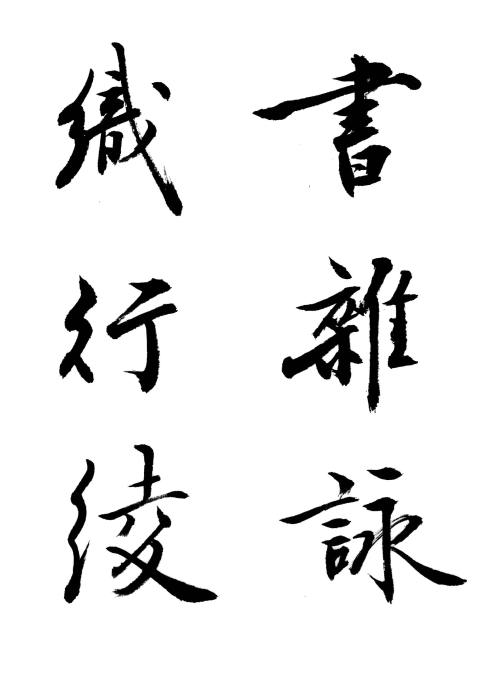 書雜詠
織行綾